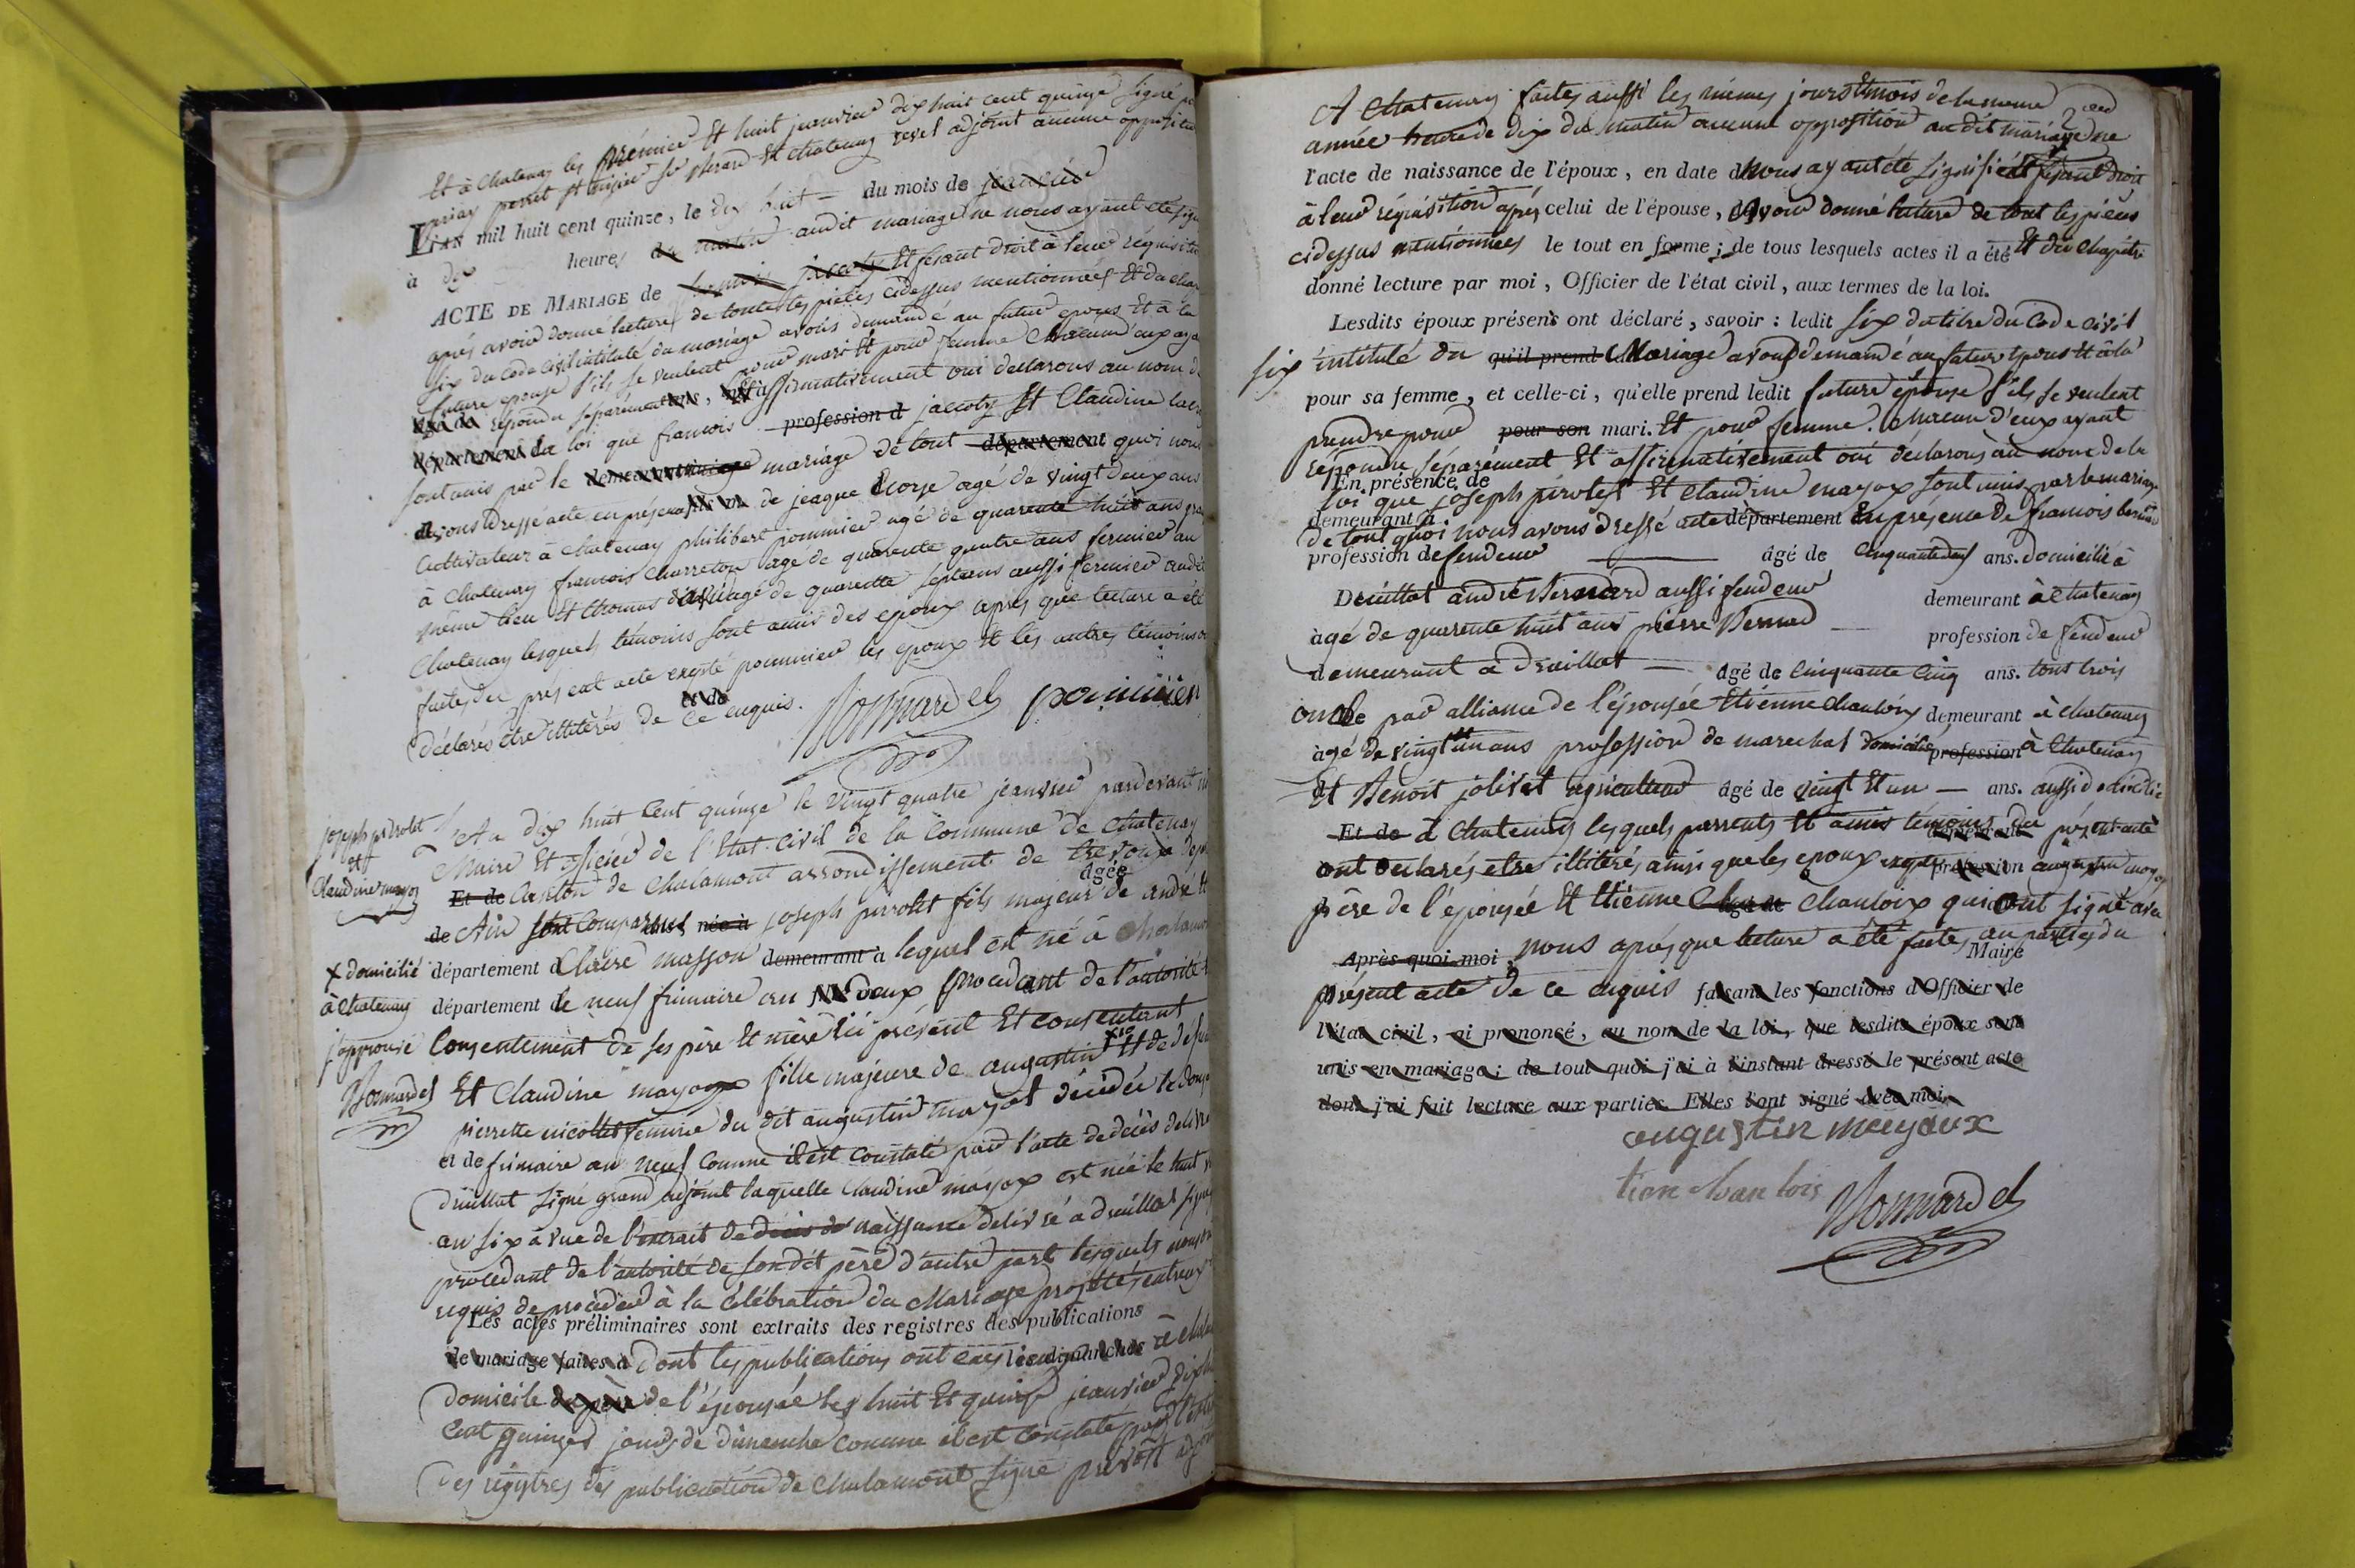 Et à Chatenay les prémier Et huit jeanvier dix huit cent quinze signé
perret St Chatenay revel adjoint aucune opposition
L'AN mil huit cent quinze, le dix huit — du mois de jeanvier
à dix heures du matin audit mariage ne nous ayant été signi
ACTE DE MARIAGE de jacoty Et fesant droit à leur réquisition
après avoir donné lecture de toutes les pièces cidessus mentionnées Et du cha
six du Code Civil intitulé du mariage avons demandé au futur epoux Et à la
future epouse s'ils se veulent pour mari Et pour femme chacun d'eux aya
répondu séparément Et affirmativement oui declarons au nom de
département la loi que francois profession d jacoty Et Claudine
sont unis par le mariage de tout département quoi nous
avons dressé acte en présence de jeaque agé de vingt deux ans
Cultivateur à Chatenay philibert pommier agé de quarente huit ans
à Chatenay francois Charreton agé de quarente quatre ans fermier au
même lieu Et thomas agé de quarente sept ans aussi fermier audit
Chatenay lesquels témoins sont amis des epoux après que lecture a été
faite du présent acte excepté pommier les epoux Et les autres témoins
déclarés être illitérés de ce enquis. Et de
Bonnardel pommier
joseph pérrolet
et
Claudine mayox
L'An dix huit Cent quinze le vingt quatre jeanvier pardevant
Maire Et officier de l'Etat-Civil de la Commune de Chatenay
Et de Canton de Chalamont arrondissement de trevoux dep
agée
de Ain sont Comparus née à joseph perrolet fils majeur de andré Et
x domicilié département d Claire masson demeurant à lequel est né à Chalamon
à Chatenay département le neuf frimaire an deux procedant de l'autorité Et
j'approuve Consentement de ses père Et mère ici présent Et consentant
Bonnardel Et Claudine mayox fille majeure de augustin Et de
pierrette nicollet femme du dit augustin mayot décédée le douze
et de frimaire an neuf Comme il est Constaté par l'acte de décès delivré
Druillat signé grand adjoint laquelle Claudine mayox est née le huit
an six à vue de l'extrait de décès de naissance delivré à druillat signé
procedant de l'autorité de son dit père d'autre part lesquels nous
requis de procéder à la Célébration du Mariage projetté entreux
Les actes préliminaires sont extraits des registres des publications
de mariage faites à dont les publications ont les dimanches
domicile de l'épousée les huit Et quinze jeanvier dix
Cent quinze jours de dimenche comme il est Constaté par
des régistres des publication de Chalamont signé prévost adj
A Chatenay faites aussi les mêmes jours Et mois de la meme
année heure de dix du matin aucune opposition au dit mariage ne
l'acte de naissance de l'époux, en date d nous ayant été signifié Et fesant droit
à leur réquisition après celui de l'épouse, avoir donné lecture de tout les pièces
cidessus mentionnées le tout en forme; de tous lesquels actes il a été Et du Chapitre
donné lecture par moi, Officier de l'état civil, aux termes de la loi.
Lesdits époux présens ont déclaré, savoir: ledit six du titre du Code Civil
six intitulé du qu'il prend Mariage avons demandé au futur epoux Et à la
pour sa femme, et celle-ci, qu'elle prend ledit future épouse s'ils se veulent
prendre pour pour son mari. Et pour femme. Chacun d'eux ayant
répondu séparément Et affirmativement oui déclarons au nom de la
En présence de
loi que joseph pérolet Et Claudine mayox sont unis par le mariage
demeurant à
De tout quoi nous avons dressé acte département En présence de francois
profession de fendeur âgé de cinquante neuf ans. domicilié à
Druillat andré Bernard aussi fendeur demeurant à Chatenay
àgé de quarente huit ans pierre Bernard — profession de fendeur
demeurant à Druillat — âgé de Cinquante Cinq ans. tous trois
oncle par alliance de l'épousée Etienne Chanloix demeurant à Chatenay
àgé de vingt un ans profession de marechal domicilié profession à Chatenay
Et Benoit jolivet agriculteur âgé de vingt Et un — ans. aussi domicilié
Et de à Chatenay lesquels parrents Et amis témoins du présent acte
ont déclarés etre illitérés ainsi que les epoux excepté profession augustin mayox
père de l'épousée Et Etienne Chanloix qui ont signé avec
Après quoi moi, nous après que lecture a été faite au parties du
Maire
présent acte de ce enquis faisant les fonctions d'Officier de
l'état civil, ai prononcé, au nom de la loi, que lesdits époux sont
unis en mariage; de tout quoi j'ai à l'instant dressé le présent acte
dont j'ai fait lecture aux parties. Elles l'ont signé avec moi.
augustin mayoux
tien chanlois Bonnardel